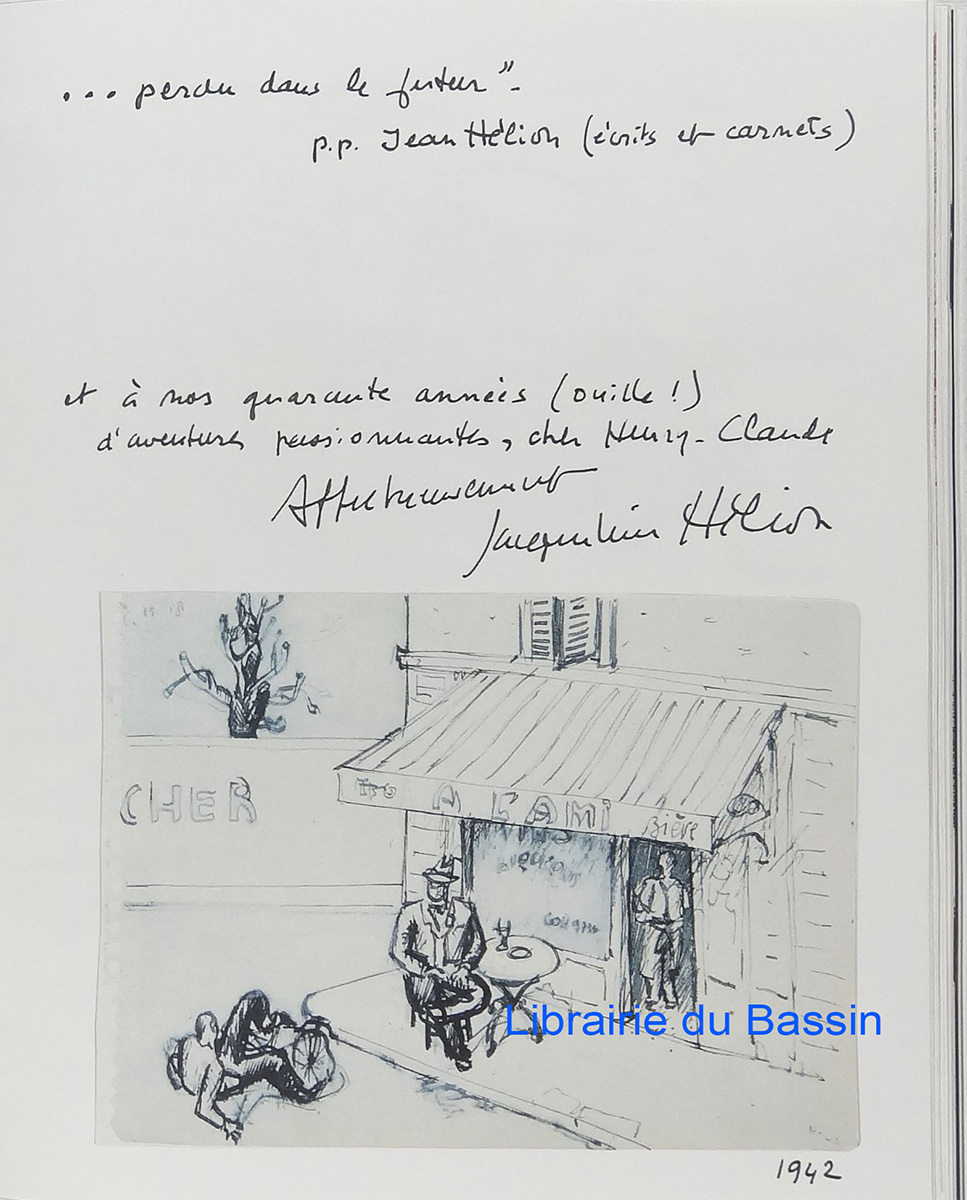 ... perdu dans le futur" -
p.p. Jean Hélion (écrits et carnets)
et à nos quarante années (ouille !)
d'aventures passionnantes, cher Henry-Claude
Affectueusement
Jacqueline Hélion
CHER
A L'AMI
Bière
Librairie du Bassin
1942